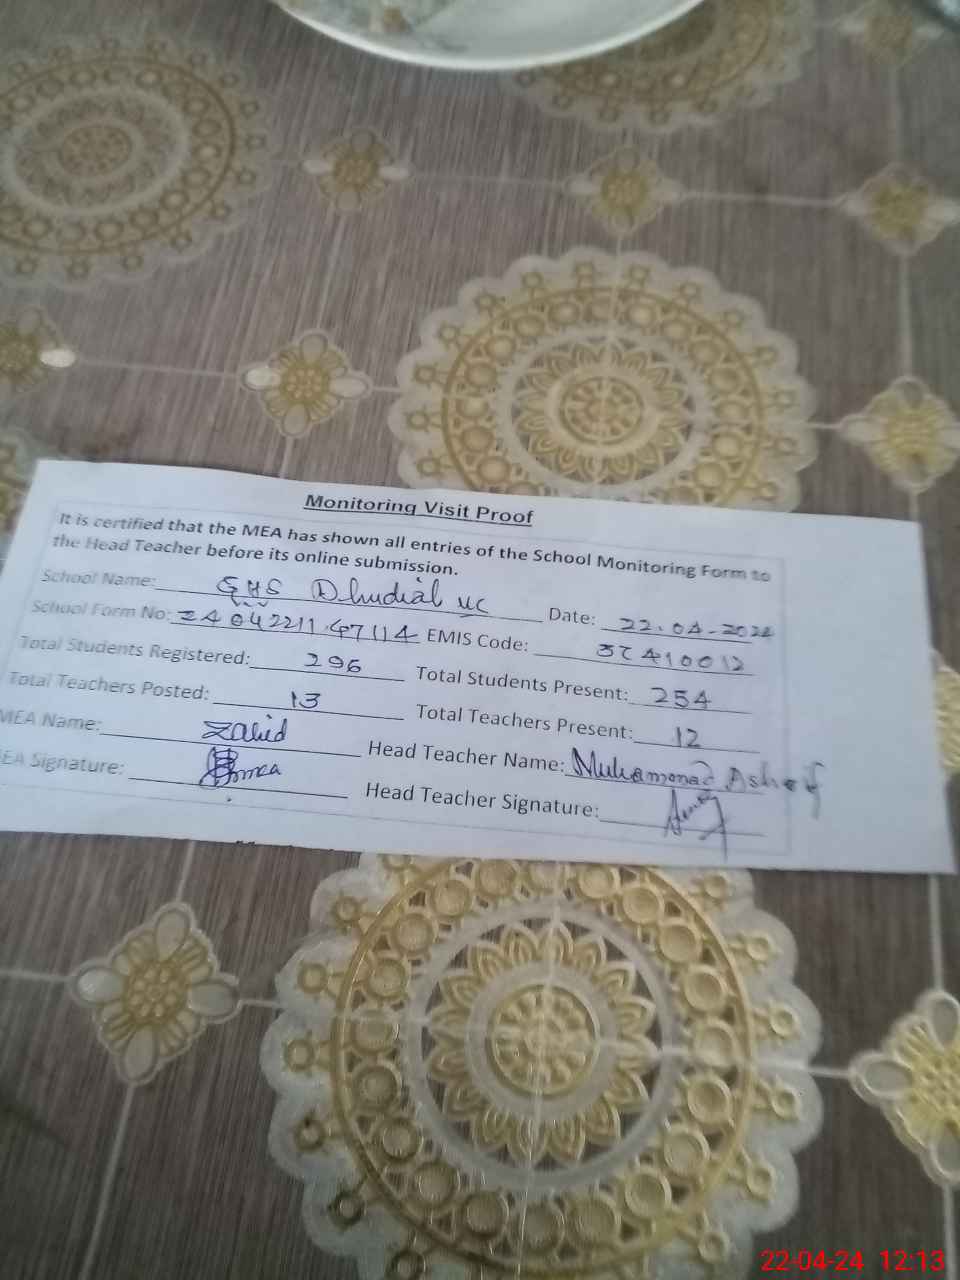 Monitoring Visit Proof
It is certified that the MEA has shown all entries of the School Monitoring Form to
the Head Teacher before its online submission.
School Name: GHS Dhudial UC Date: 22.04-2024
School Form No: 24042211.47114 EMIS Code: 37410012
Total Students Registered: 296 Total Students Present: 254
Total Teachers Posted: 13 Total Teachers Present: 12
MEA Name: Zahid Head Teacher Name: Muhammad Ashraf
EA Signature: Head Teacher Signature:
22-04-24 12:13